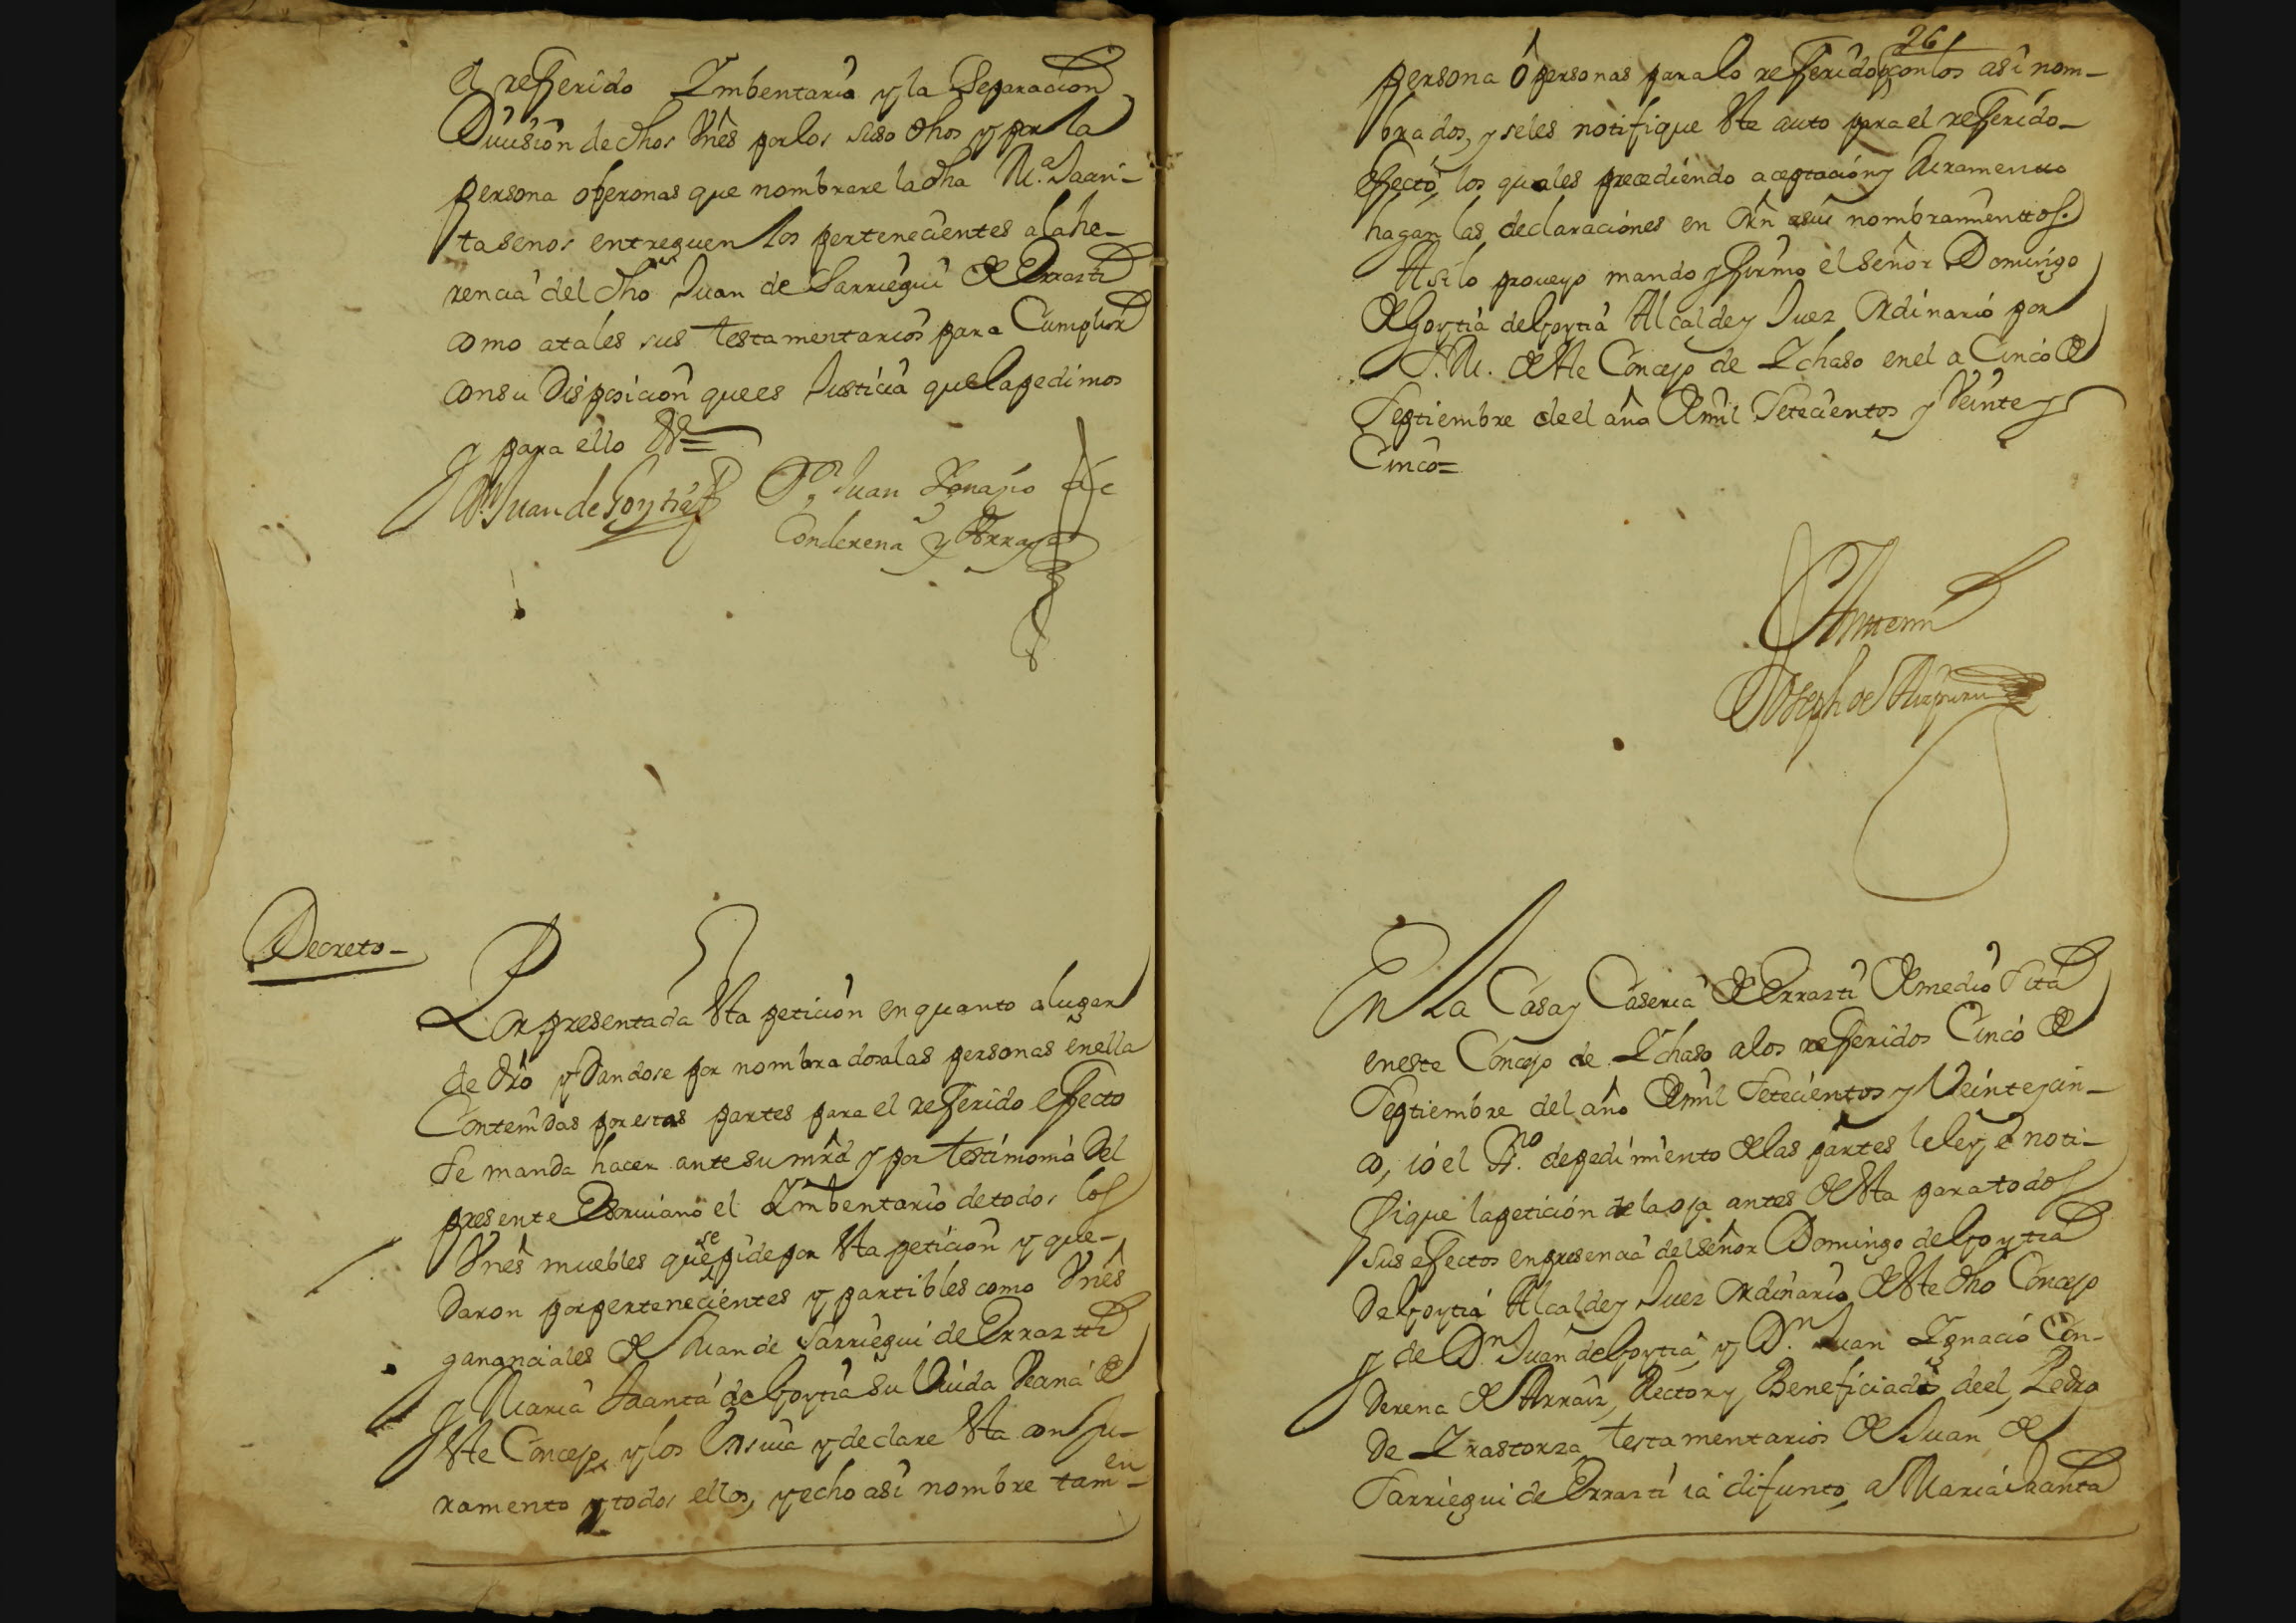 el refferido Imbentario y la Separacion
Diuision de dhos Vnes por los suso dhos y por la
persona o peronas que nombrare la dha M.ª Saan-
ta senos entreguen los pertenecientes a la he-
rencia del dho Juan de Sarriegui de Errazti
como a tales sus testamentarios para Cumplir
con su Disposicion que es Justicia que la pedimos
y para ello &ª=
Dn Juan de Goytia
Dn Juan Ignazio de
Conderena y Arraya
Decreto-
Por presentada esta peticion en quanto a lugar
de dro y Dandose por nombrados a las personas en ella
Contenidas por estas partes para el refferido effecto
Se manda hacer ante su mrd y por testimonio Del
presente Escriuano el Imbentario de todos los
Vnes muebles que se pide por esta peticion y que-
Daron por pertenecientes y partibles como Vnes
gananciales de Juan de Sarriegui de Errazti
y Maria Saanta de Goytia su Viuda Veçina de
este Concejo y los Exsiua y declare esta con Ju-
ramento todos ellos, y echo asi nombre tamen-
26
persona ò personas para lo refferido con los asi nom-
brados, y seles notifique este auto para el refferido
effecto, los quales precediendo aceptacion y Juramento
hagan las declaraciones en Rn a sus nombramienttos.
Asi lo proueyo mando y firmo el señor Domingo
de Goytia de Goytia Alcalde y Juez Ordinario por
S. M. de este Concejo de Ichaso en el a Cinco de
Septiembre de el año de mil Setecientos y Veinte y
Cinco=
Antemi
Joseph de Aizpuru
En La Casa y Caseria de Errazti de medio Sita
en este Concejo de Ichaso a los refferidos Cinco de
Septiembre del año de mil Setecientos y Veinte y cin-
co, io el Ssno de pedimiento de las partes le ley, e noti-
fique la peticion de la oja antes de esta para todos
sus efectos en presencia del señor Domingo de Goytia
De Goytia Alcalde y Juez Ordinario de este dho Concejo
y de Dn Juan de Goytia, y Dn Juan Ignacio Con-
Derena de Arraiz, Rector y, Beneficiado de el, Pedro
De Irastorza testamentarios de Juan de
Sarriegui de Errazti ia difunto, a Maria Saanta